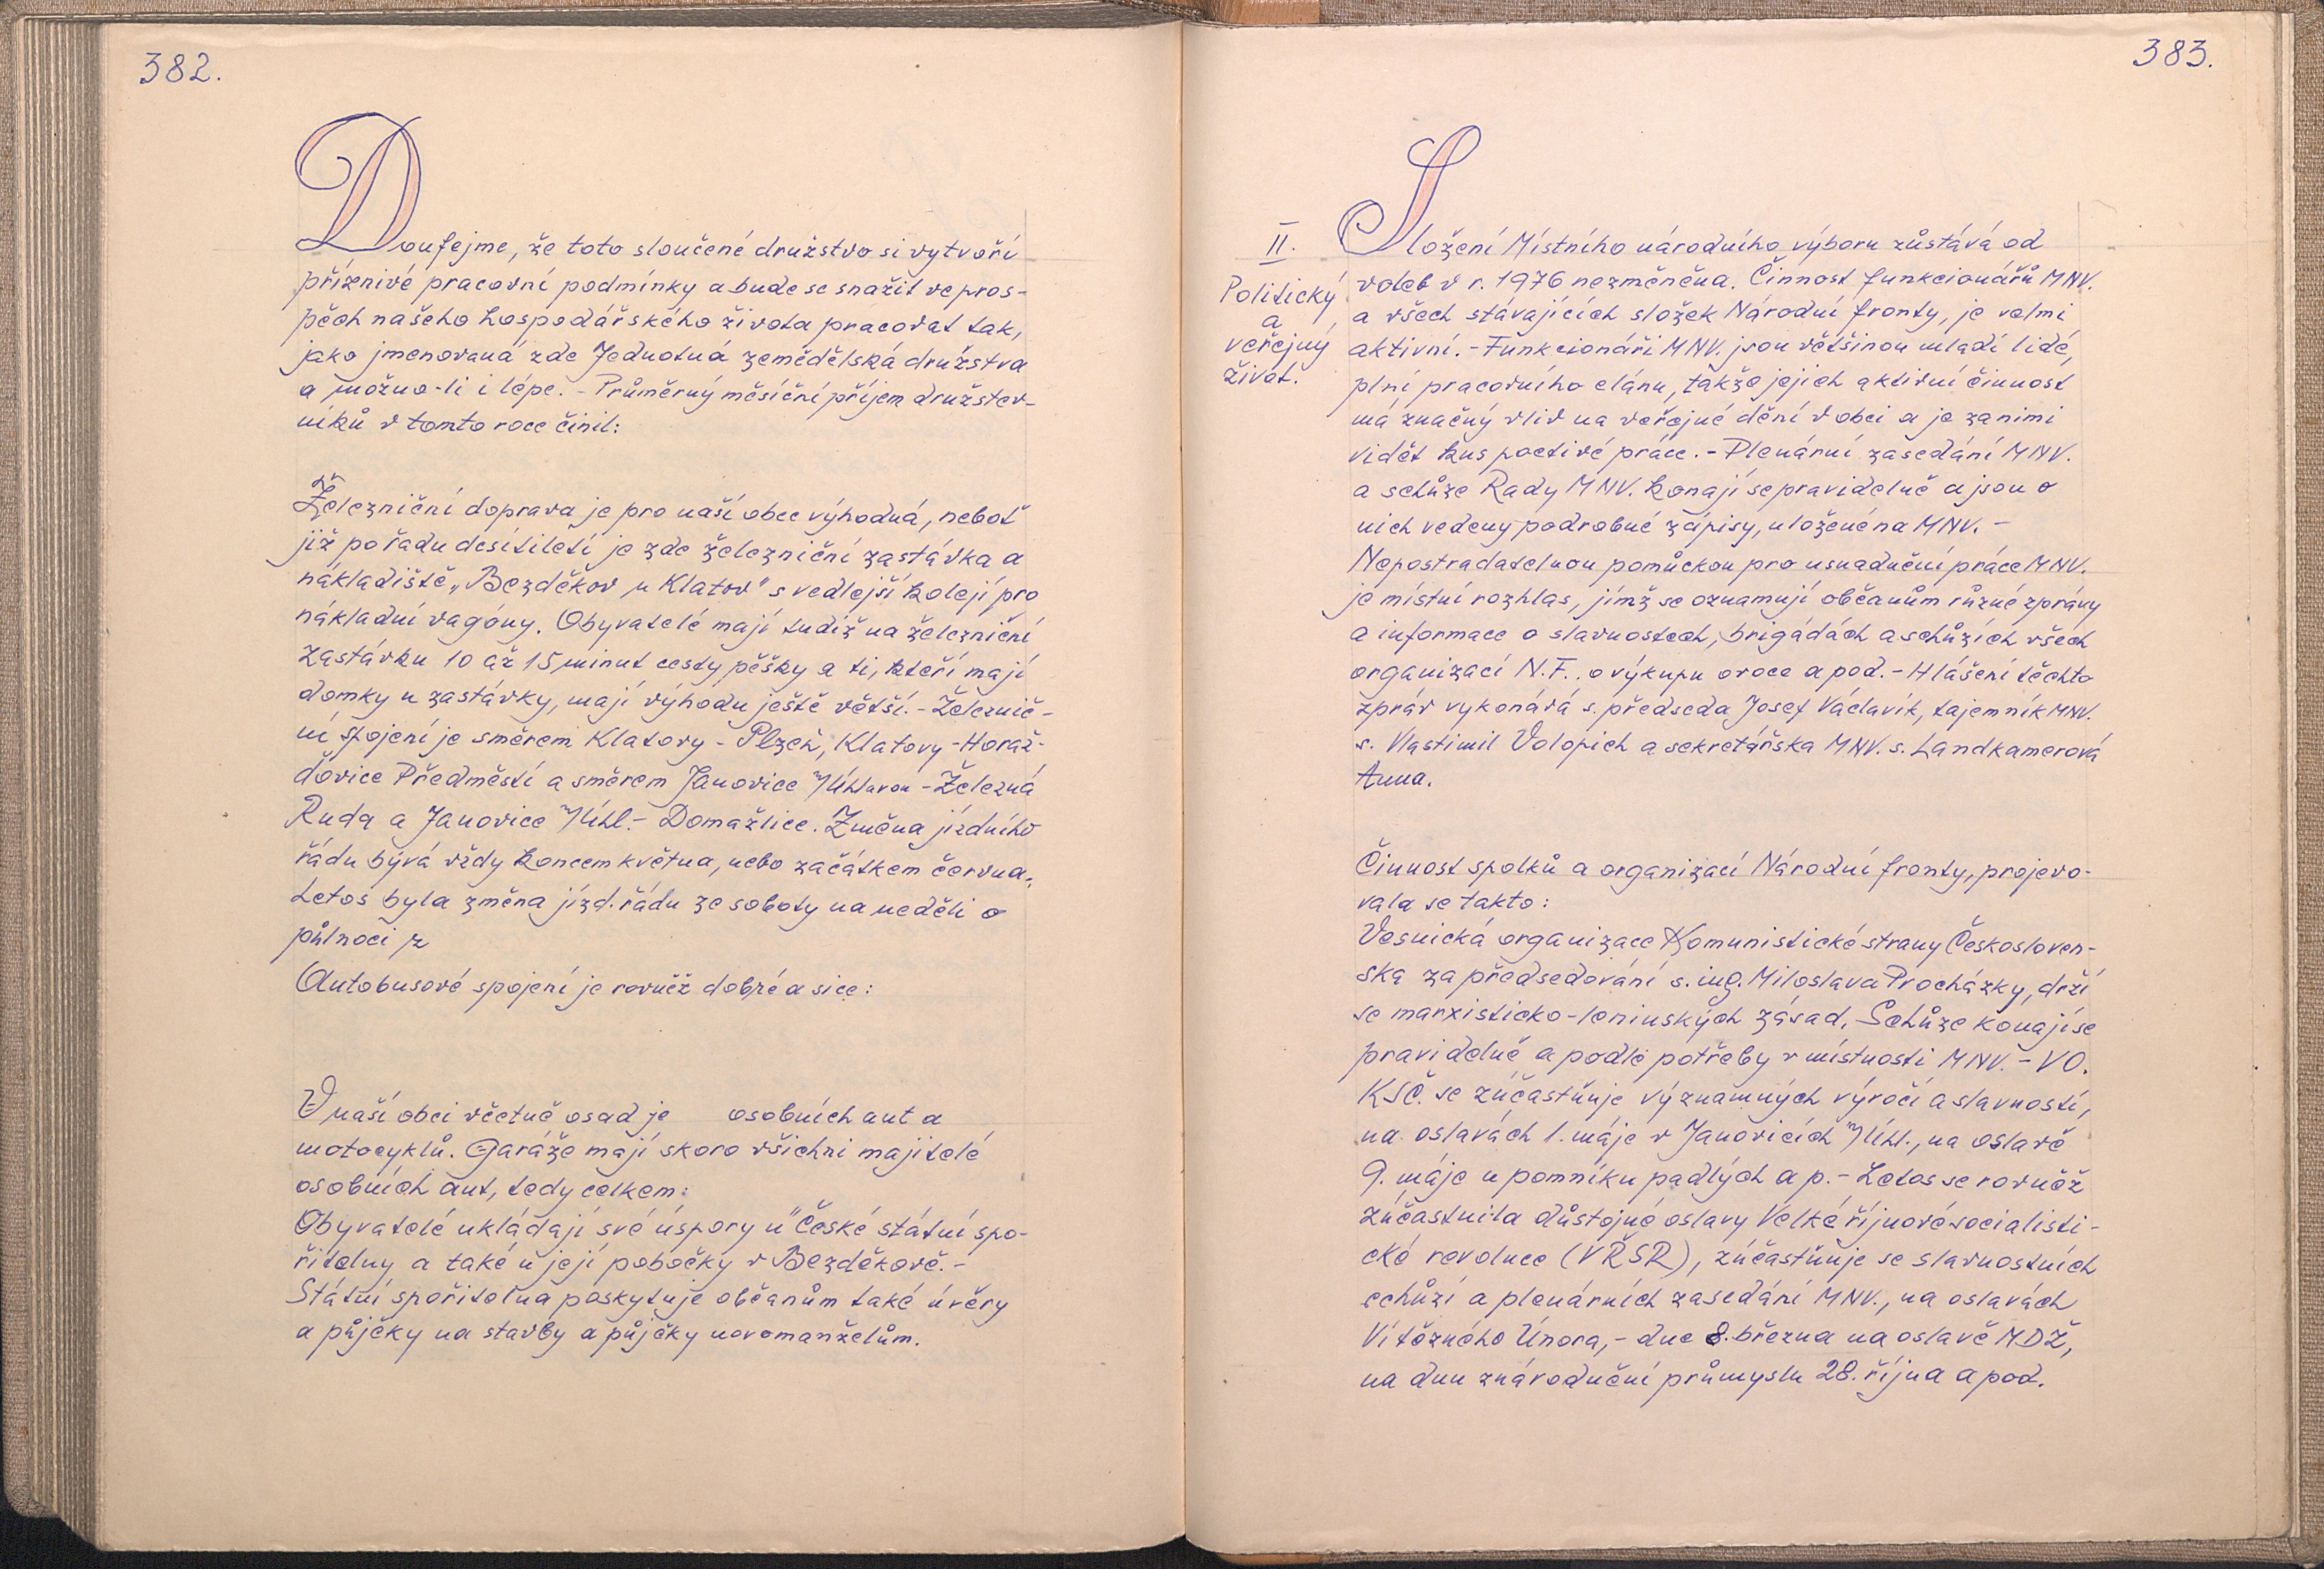 382.
Doufejme, že toto sloučené družstvo si vytvoří
příznivé pracovní podmínky a bude se snažit ve pros-
pěch našeho hospodářského života pracovat tak,
jako jmenovaná zde Jednotná zemědělská družstva
a možno-li i lépe. - Průměrný měsíční příjem družstev-
níků v tomto roce činil:
Železniční doprava je pro naší obec výhodná, neboť
již po řadu desítiletí je zde železniční zastávka a
nákladiště „Bezděkov u Klatov" s vedlejší kolejí pro
nákladní vagóny. Obyvatelé mají tudíž na železniční
zastávku 10 až 15 minut cesty pěšky a ti, kteří mají
domky u zastávky, mají výhodu ještě větší. - Železnič-
ní spojení je směrem Klatovy - Plzeň, Klatovy - Horaž-
ďovice Předměstí a směrem Janovice n/Úhlavou - Železná
Ruda a Janovice n/Úhl. - Domažlice. Změna jízdního
řádu bývá vždy koncem května, nebo začátkem června.
Letos byla změna jízd. řádu ze soboty na neděli o
půlnoci z
Autobusové spojení je rovněž dobré a sice:
V naší obci včetně osad je osobních aut a
motocyklů. Garáže mají skoro všichni majitelé
osobních aut, tedy celkem:
Obyvatelé ukládají své úspory u České státní spo-
řitelny a také u její pobočky v Bezděkově. -
Státní spořitelna poskytuje občanům také úvěry
a půjčky na stavby a půjčky novomanželům.
383.
II.
Politický
a
veřejný
život.
Složení Místního národního výboru zůstává od
voleb v r. 1976 nezměněna. Činnost funkcionářů MNV.
a všech stávajících složek Národní fronty, je velmi
aktivní. - Funkcionáři MNV. jsou většinou mladí lidé,
plní pracovního elánu, takže jejich aktivní činnost
má značný vliv na veřejné dění v obci a je za nimi
vidět kus poctivé práce. - Plenární zasedání MNV.
a schůze Rady MNV. konají se pravidelně a jsou o
nich vedeny podrobné zápisy, uložené na MNV. -
Nepostradatelnou pomůckou pro usnadnění práce MNV.
je místní rozhlas, jímž se oznamují občanům různé zprávy
a informace o slavnostech, brigádách a schůzích všech
organizací N.F. o výkupu ovoce a pod. - Hlášení těchto
zpráv vykonává s. předseda Josef Václavík, tajemník MNV.
s. Vlastimil Volopich a sekretářska MNV. s. Landkamerová
Anna.
Činnost spolků a organizací Národní fronty, projevo-
vala se takto:
Vesnická organizace Komunistické strany Českosloven-
ska za předsedování s. ing. Miloslava Procházky, drží
se marxisticko-leninských zásad. Schůze konají se
pravidelně a podle potřeby v místnosti MNV. - VO.
KSČ. se zúčastňuje významných výročí a slavností,
na oslavách 1. máje v Janovicích n/Úhl., na oslavě
9. máje u pomníku padlých a p. - Letos se rovněž
zúčastnila důstojné oslavy Velké říjnové socialisti-
cké revoluce (VŘSR), zúčastňuje se slavnostních
schůzí a plenárních zasedání MNV., na oslavách
Vítězného Února, - dne 8. března na oslavě MDŽ,
na dnu znárodnění průmyslu 28. října a pod.